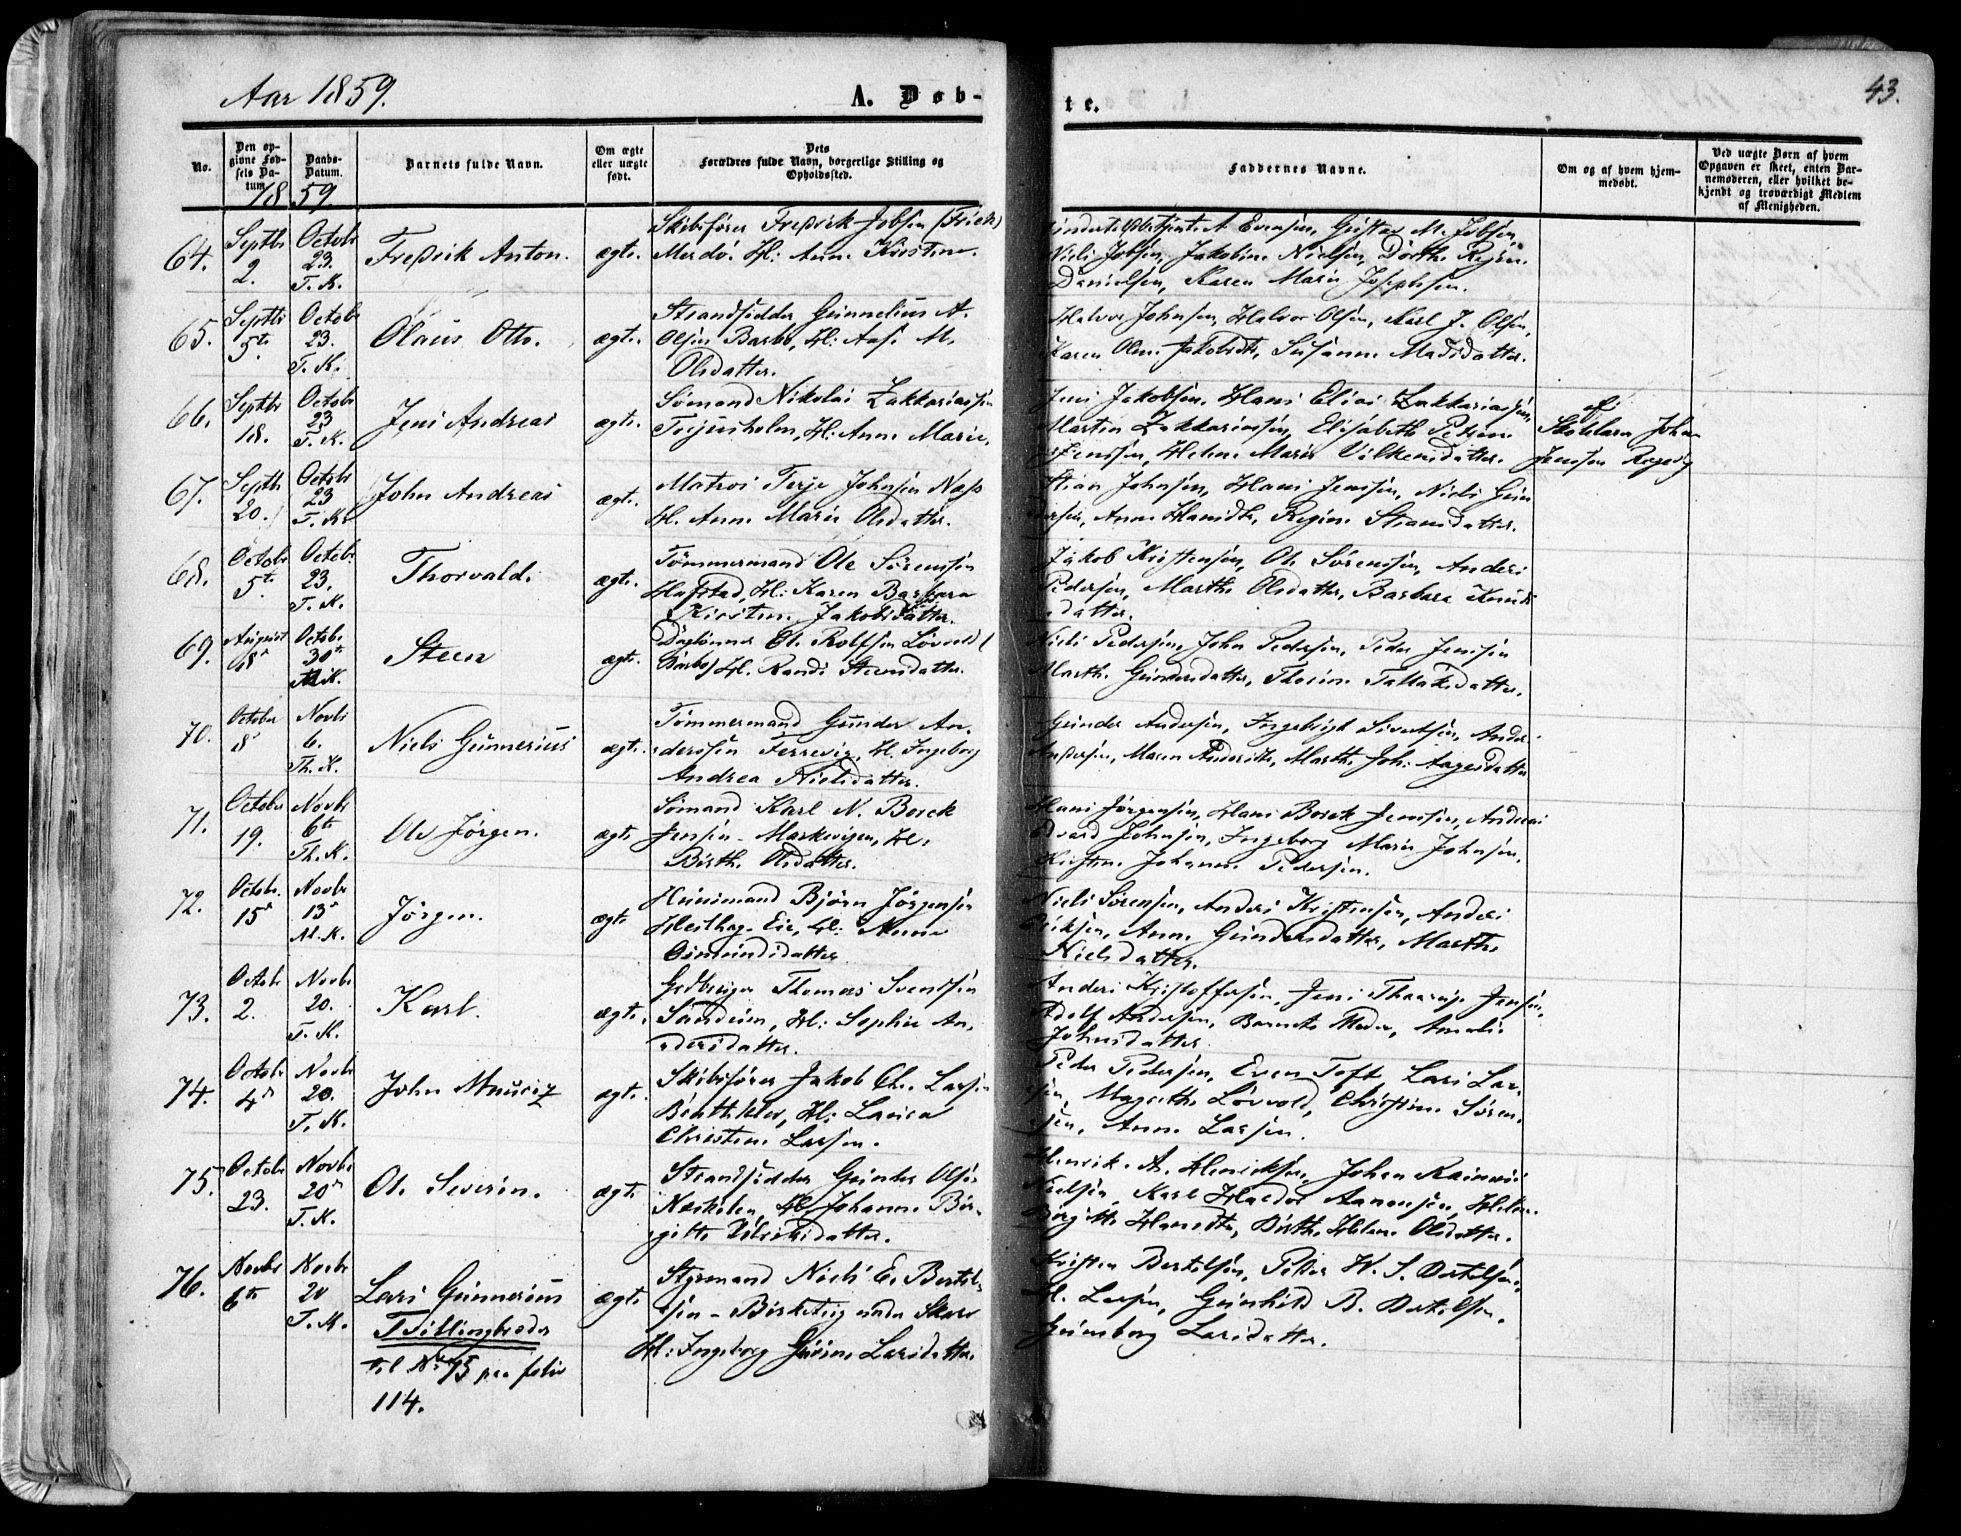 Aar 1859.
A. Døb-
te.
43.
No.
Den op-
givne Fød-
sels Da-
tum.
Daabs-
Datum.
Barnets fulde Navn.
Om ægte
eller uægte
født.
Dets
Forældres fulde Navn, borgerlige Stilling og
Opholdssted.
Faddernes Navne.
Om og af hvem hjem-
medøbt.
Ved uægte Børn af hvem
Opgaven er skeet, enten Bar-
nemoderen, eller hvilket be-
kjendt og troværdigt Medlem
af Menigheden.
1859
64.
Septbr
2.
Octobr
23.
T. K.
Fredrik Anton.
ægte.
Skibsfører Fredrik Jobsen
Merdø. H: Anne Kirstine.
Evensen, Gustav M. Jobsen,
Niels Jobsen, Jakobine Nielsen, Dorthe Regine
Danielsen, Karen Marie Josephsen.
65.
Septbr
5te
Octobr
23.
T. K.
Olaus Otto.
ægte.
Strandsidder Gunnelius A.
Olsen Barbo, H: Aase M.
Olsdatter.
Halvor Johnsen, Halvor Olsen, Karl J. Olsen,
Karen Oline Jakobsdtr, Susanne Madsdatter.
66.
Septbr
18.
Octobr
23
T. K.
Jens Andreas
ægte.
Sømand Nikolai Zakkariassen
H: Anne Marie.
Jens Jakobsen, Hans Elias Zakkariassen,
Martin Zakkariassen, Elisabeth
Jenssen, Helene Marie Vilkensdatter.
af
Skolelærer Johan
Jenssen
67.
Septbr
20.
Octobr
23
T. K.
John Andreas
ægte.
Matros Terje Johnsen Næs
H. Anne Marie Olsdatter.
Stian Johnsen, Hans Jenssen, Niels
Anne Hansdtr, Regine
68.
Octobr
5te
Octobr.
23.
T. K.
Thorvald.
ægte.
Tømmermand Ole Sørenssen
Hafstad, H: Karen Barbara
Kirstine Jakobsdatter.
Jakob Kristensen, Ole Sørenssen, Anders
Pedersen, Marthe Olsdatter, Barbara Knuds
datter.
69.
August
18
Octobr
30te
Steen
ægte.
Daglønner Ol. Rolfsen Løvold
(Barbo) H. Randi Steensdatter.
Niels Pedersen, John Pedersen, Peder Jenssen
Marthe Gundersdatter, Thorine Tallaksdatter.
70.
October
8
Novbr
6.
Th. K.
Niels Gunnerius
ægte.
Tømmermand Gunder An-
derssen Ferrevig, H. Ingeborg
Andrea Nielsdatter.
Gunder Andersen, Ingebrigt Sivertsen, Anders
Andersen, Maren Andersdtr, Marthe Joh: Aagesdatter
71.
October
19.
Novbr
6te
Th. K.
Ole Jørgen.
ægte.
Sømand Karl N. Borck
Jensen - Markevigen, H.
Birthe Olsdatter.
Hans Jørgensen, Hans Borck Jenssen, Andreas
Edvard Johnsen, Ingeborg Marie Johnsen,
Kirstine Johanne Pedersen.
72.
Octobr.
15
Novbr
13
Jørgen.
ægte
Huusmand Bjørn Jørgensen
Eie, H:
Osmundsdatter
Niels Sørensen, Anders Kristensen, Anders
Eriksen, Anne Gundersdatter, Marthe
Nielsdatter.
73.
Octobr
2.
Novbr
20.
T. K.
Karl.
ægte.
Thomas Svendsen
H: Sophie An-
dersdatter.
Anders Kristoffersen, Jens Thaarup Jensen,
Adolf Andersen, Barnets Moder, Amalie
Johnsdatter.
74.
Octobr
4
Novbr
20.
T. K.
John Mauritz
ægte.
Skibsfører Jakob Chr. Larsen
H: Laura
Christine Larsen.
Peder Pedersen, Even Toft Lars Lar-
sen, Magrethe Løvold, Christine Søren-
sen, Anne Larsen.
75.
Octobr
23.
Novbr
20
T. K.
Ole Severin.
ægte
Strandsidder Gunder Olsen
H. Johanne Bir-
gitte Ulriksdatter.
Henrik A. Henriksen, Johan
Nielsen, Karl Haldor Aanonsen, Helene
Birgitte Hansdtr, Birthe Helene Olsdatter.
76.
Novbr
6te
Novbr
20
T. K.
Lars Gunnerius
Tvillingbroder
til No 75 paa folio
114.
ægte
Styrmand Niels E. Bertel-
sen - Birketvig
H: Ingeborg Larsdatter.
Kristen Bertelsen, Peder W. S. Bertelsen,
H. Larsen, Gunhild B. Bertelsen,
Gunborg Larsdatter.